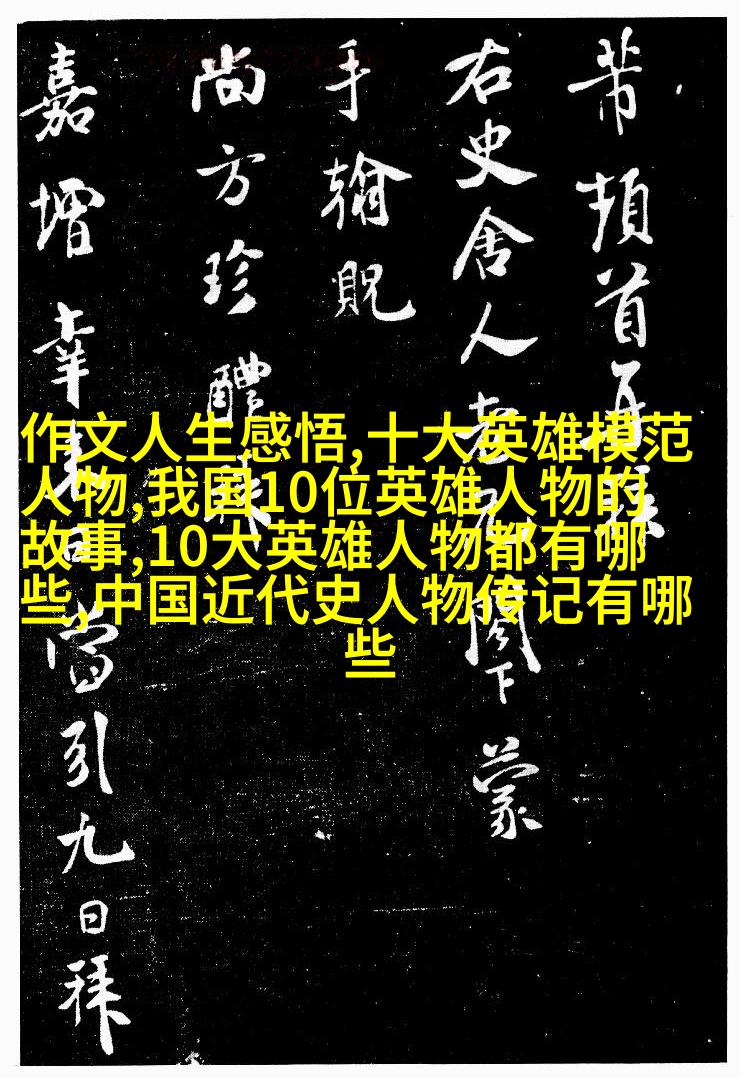 芾頓首再
右史舍人閣下蒙
手翰貺
尚方珍醴
嘉增幸當引九日拜
作文人生感悟,十大英雄模范
人物,我国10位英雄人物的
故事,10大英雄人物都有哪
些,中国近代史人物传记有哪
些